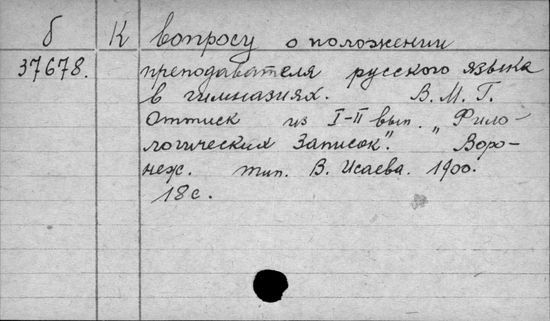 б К вопросу о положении
37678. преподавателя русского языка
в гимназиях. В. М. Г.
Оттиск из I-II вып. „Фило-
логических Записок". Воро-
неж. тип. В. Исаева. 1900.
18 с.